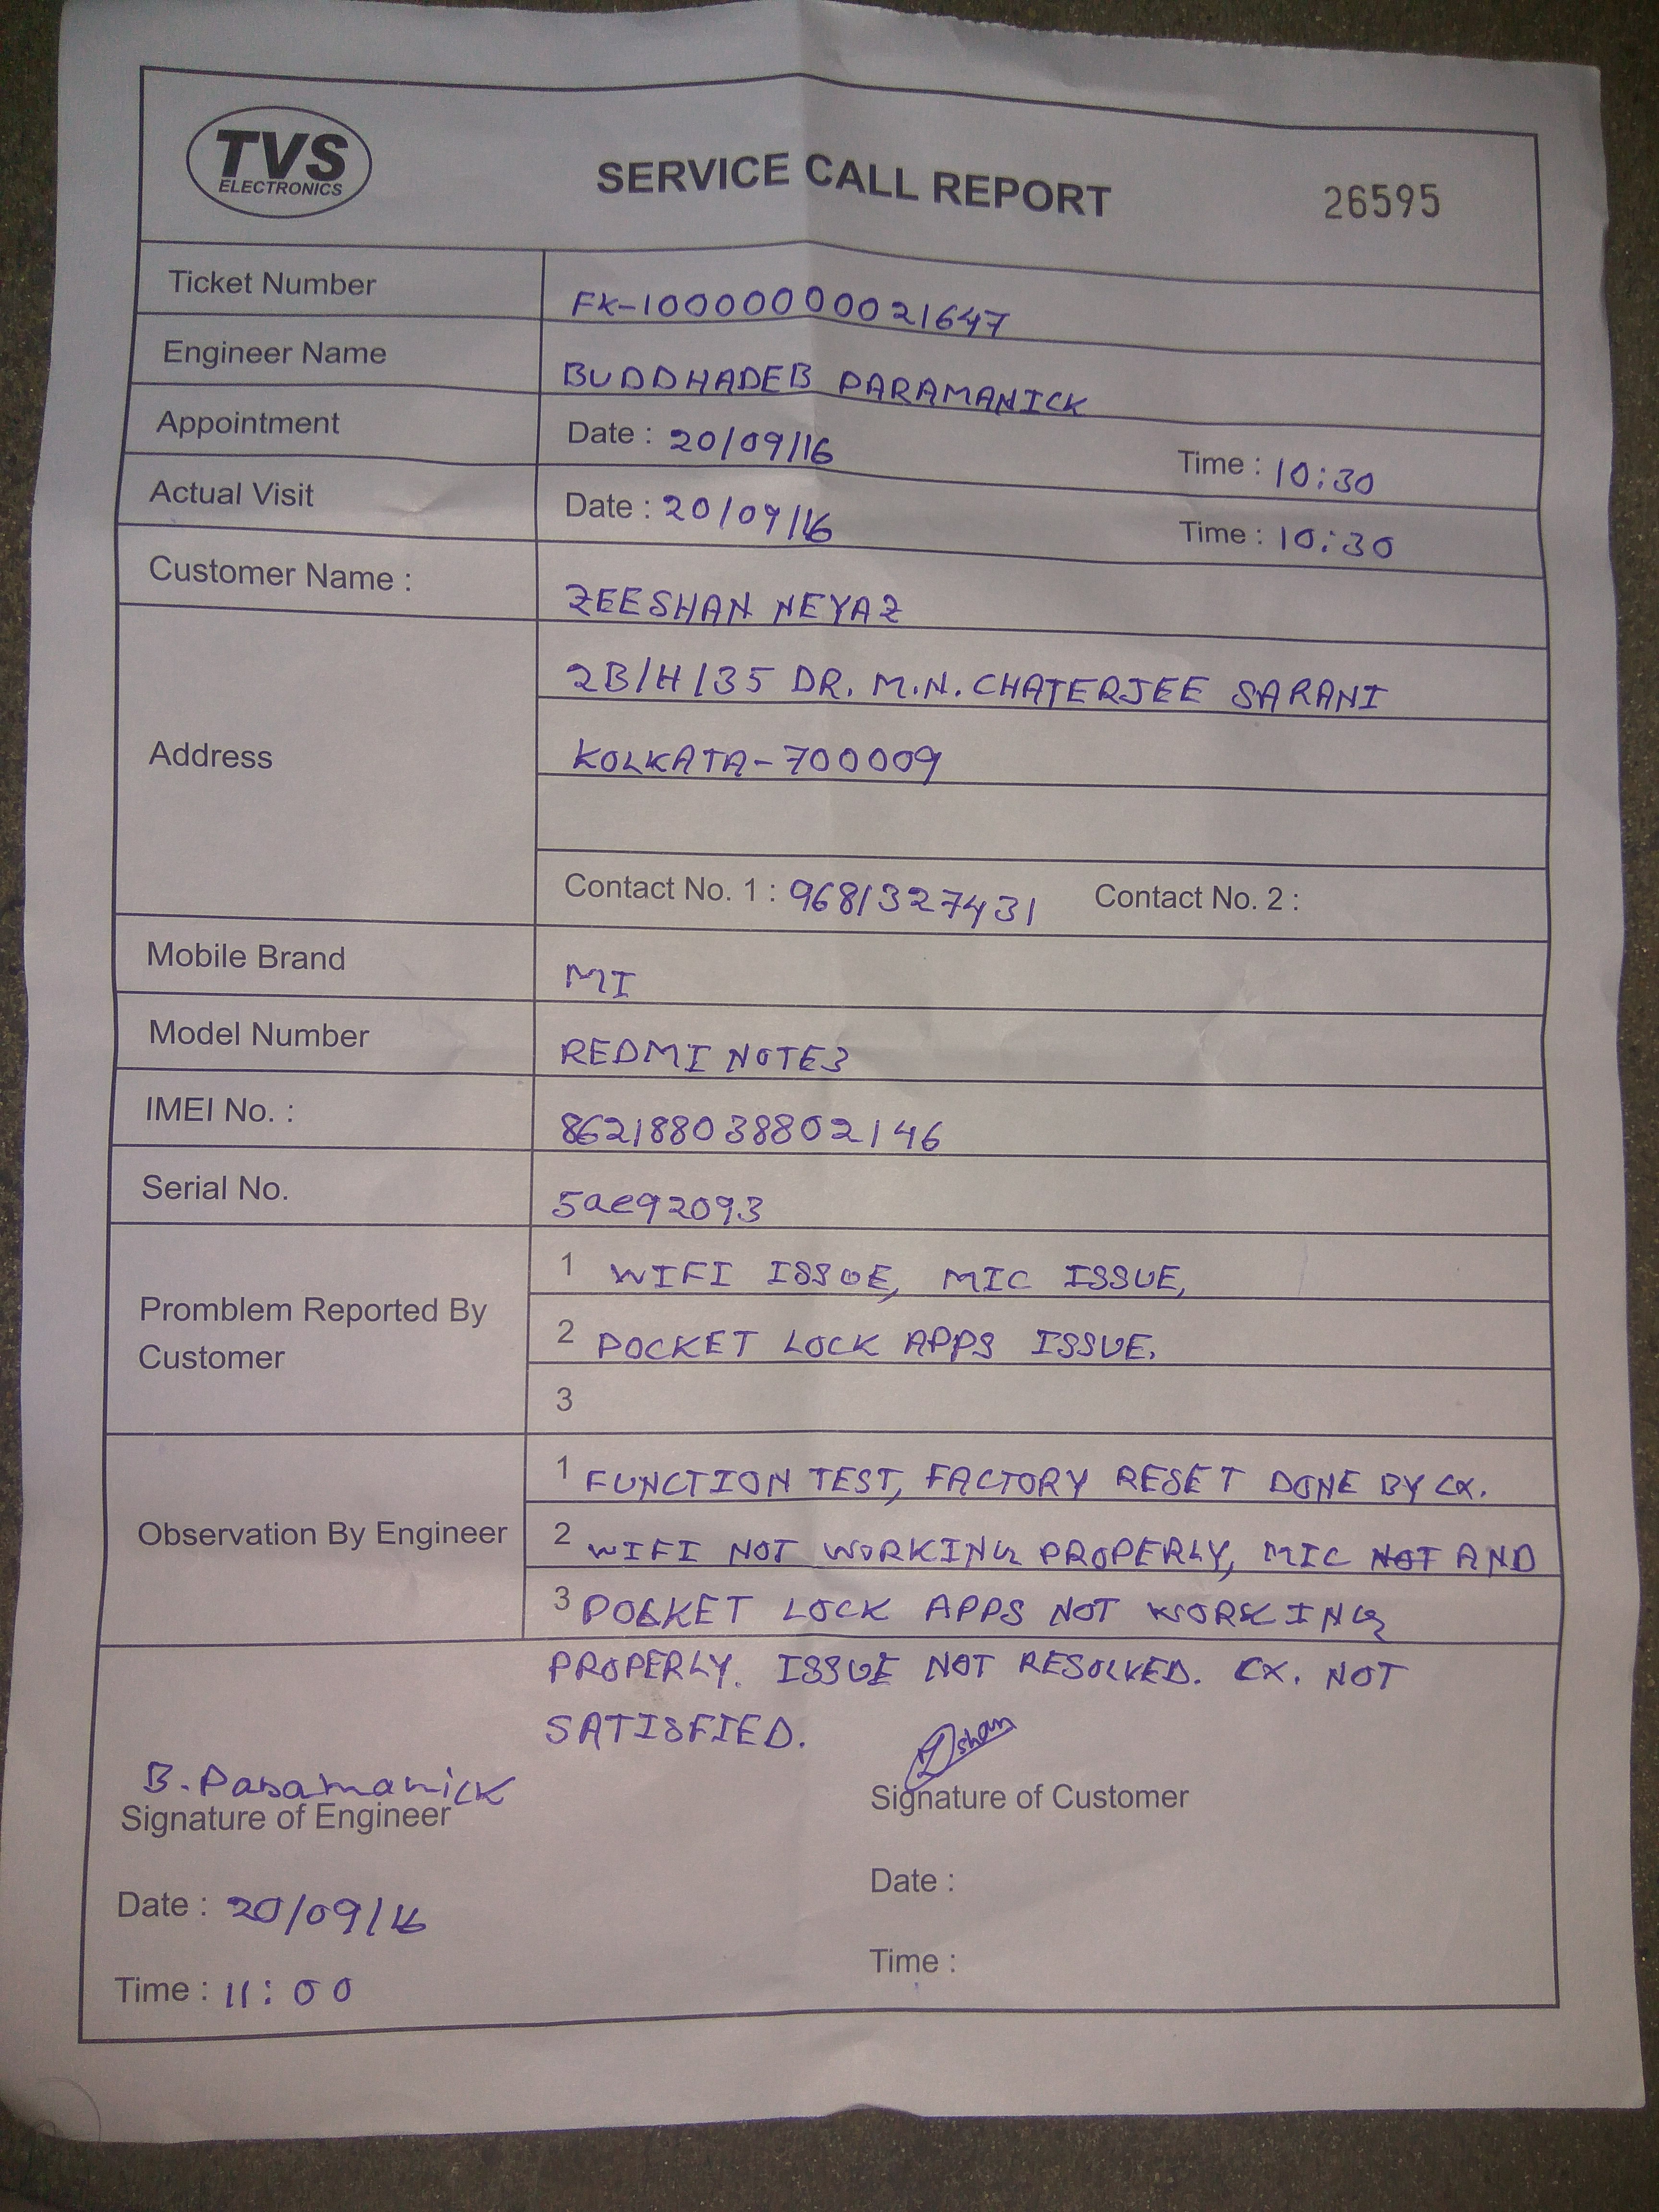 TVS
ELECTRONICS
SERVICE CALL REPORT
26595
Ticket Number
FK-10000000021647
Engineer Name
BUDDHADEB PARAMANICK
Appointment
Date : 20/09/16 Time : 10:30
Actual Visit
Date : 20/09/16 Time : 10:30
Customer Name :
ZEESHAN NEYAZ
Address
2B/H/35 DR. M.N. CHATERJEE SARANI
KOLKATA-700009
Contact No. 1 : 9681327431 Contact No. 2 :
Mobile Brand
MI
Model Number
REDMI NOTE3
IMEI No. :
862188038802146
Serial No.
5ae92093
Promblem Reported By
Customer
1 WIFI ISSUE, MIC ISSUE,
2 POCKET LOCK APPS ISSUE.
3
Observation By Engineer
1 FUNCTION TEST, FACTORY RESET DONE BY CX.
2 WIFI NOT WORKING PROPERLY, MIC NOT AND
3 POCKET LOCK APPS NOT WORKING
PROPERLY. ISSUE NOT RESOLVED. CX. NOT
SATISFIED.
B. Paramanick
Signature of Engineer
Date : 20/09/16
Time : 11:00
Signature of Customer
Date :
Time :